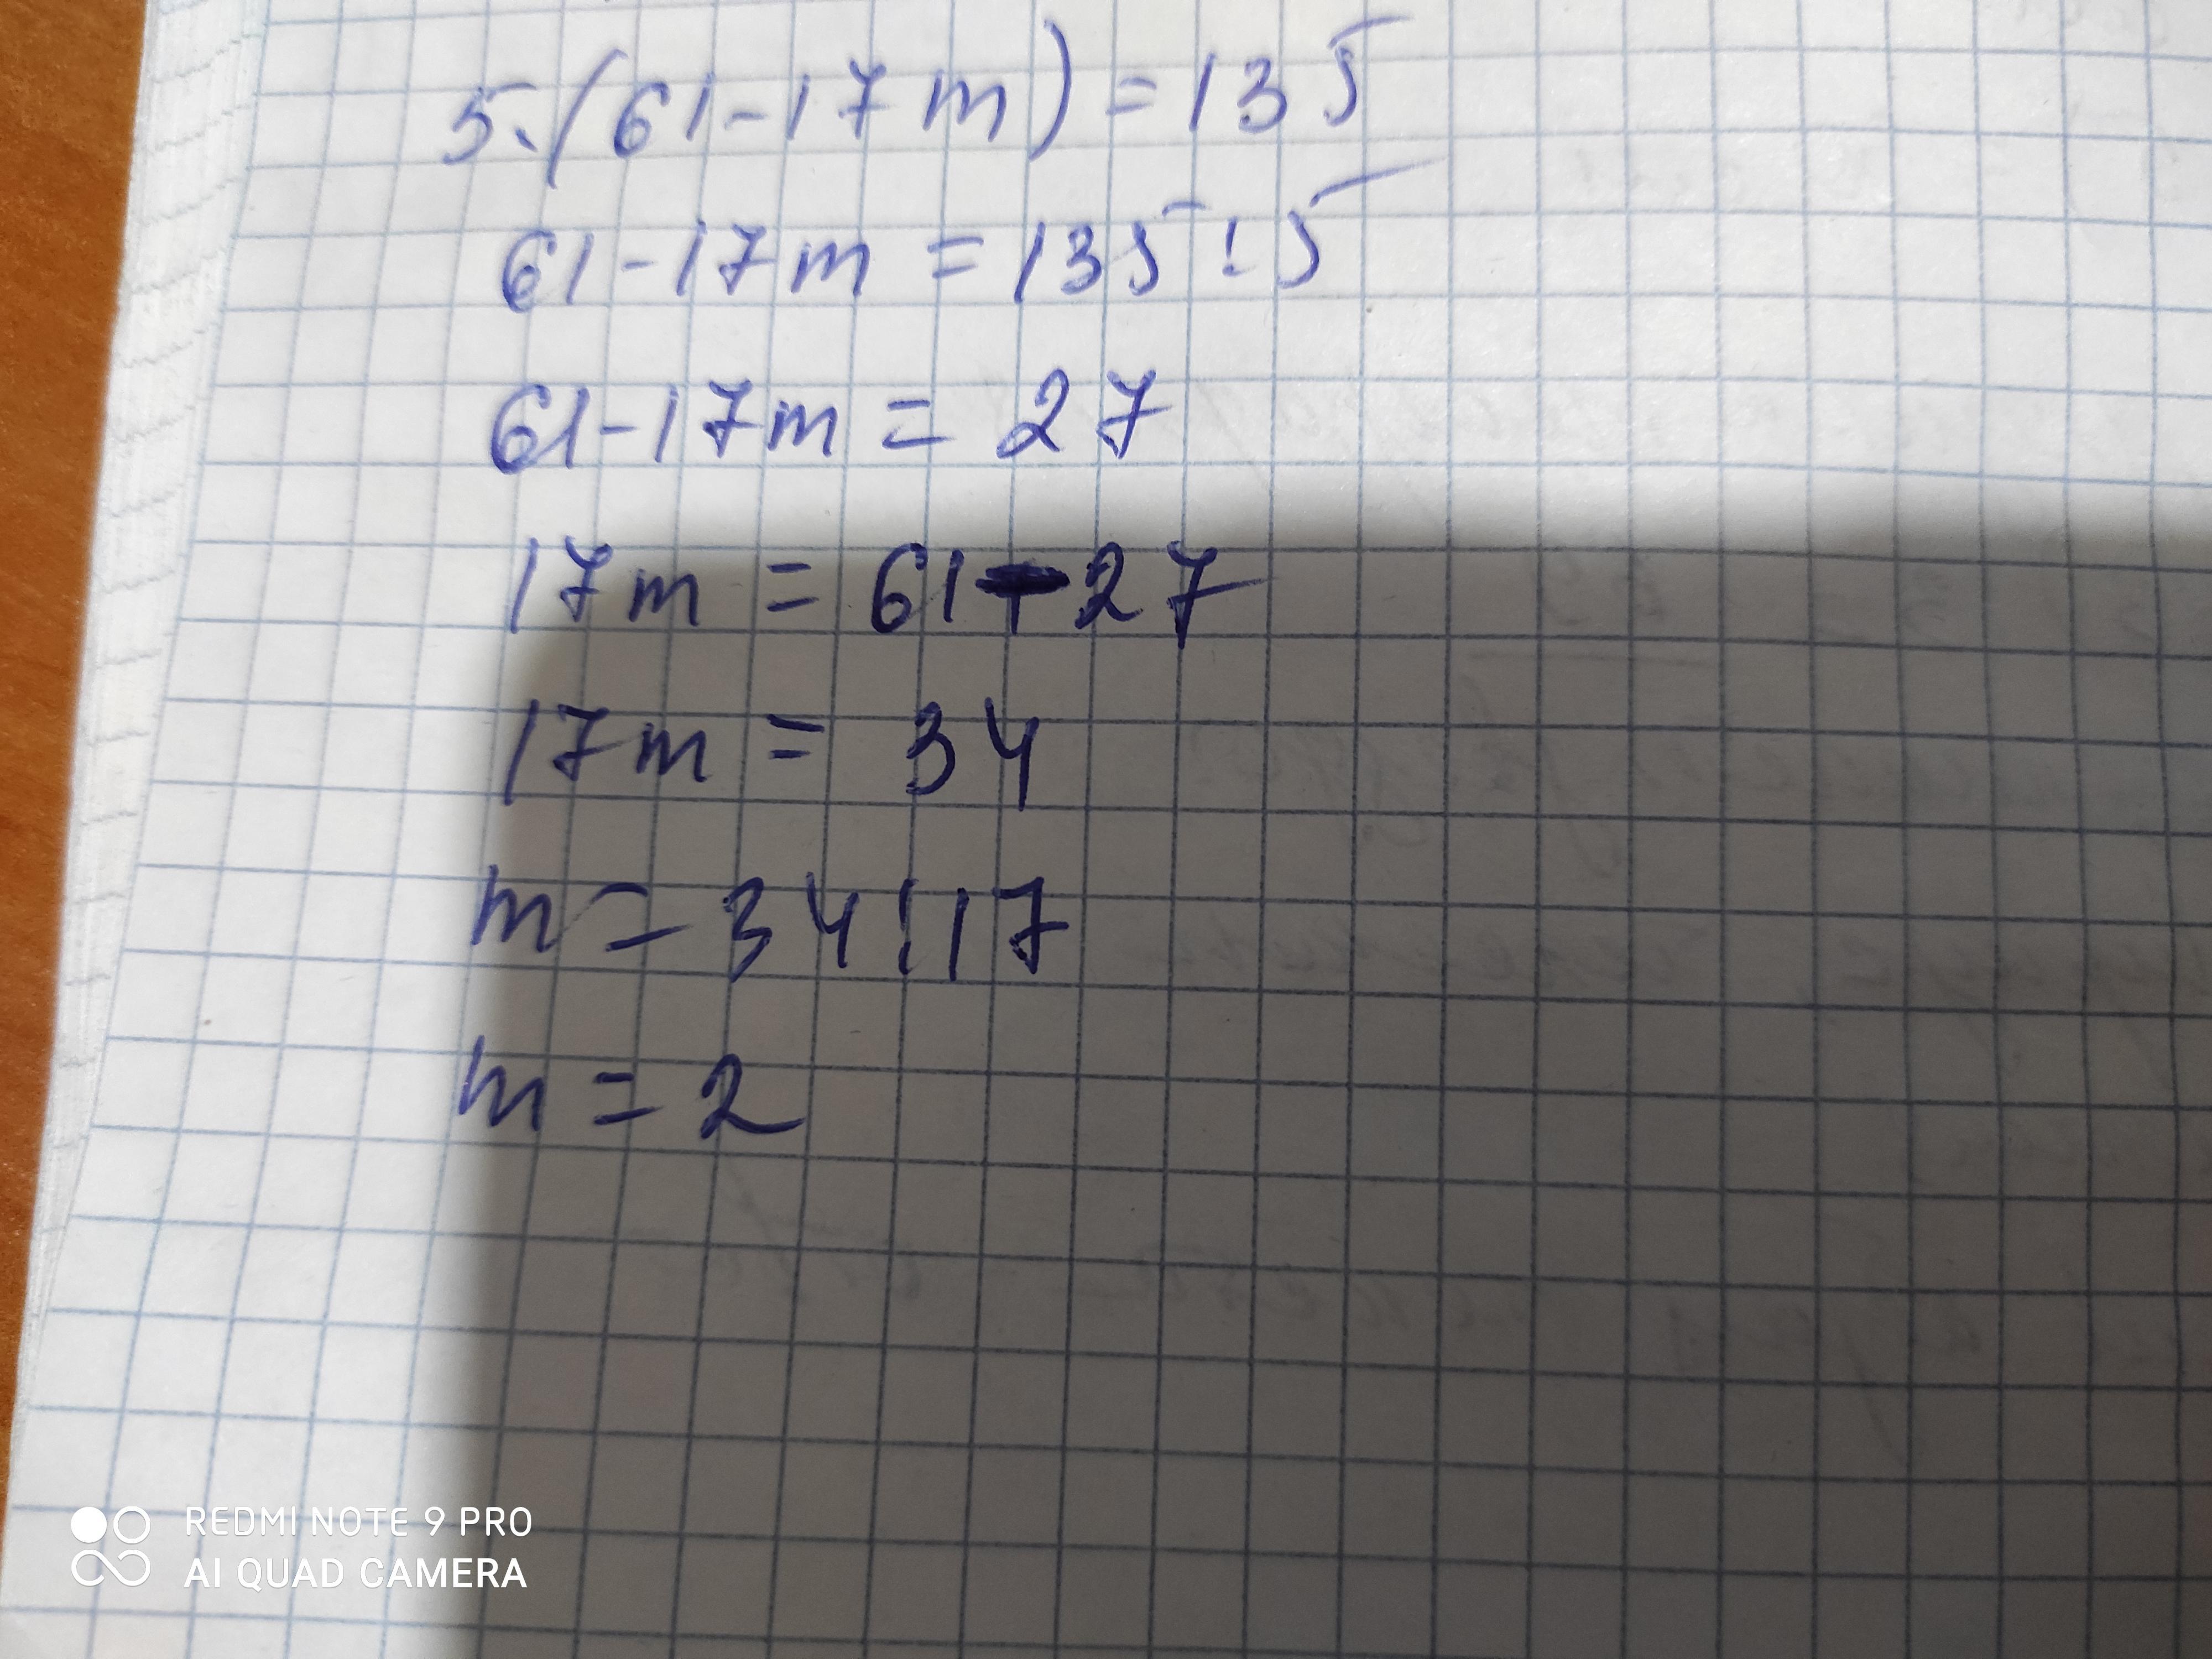 5·(61-17m)=135
61-17m=135:5
61-17m=27
17m=61-27
17m=34
m=34:17
m=2
REDMI NOTE 9 PRO
AI QUAD CAMERA